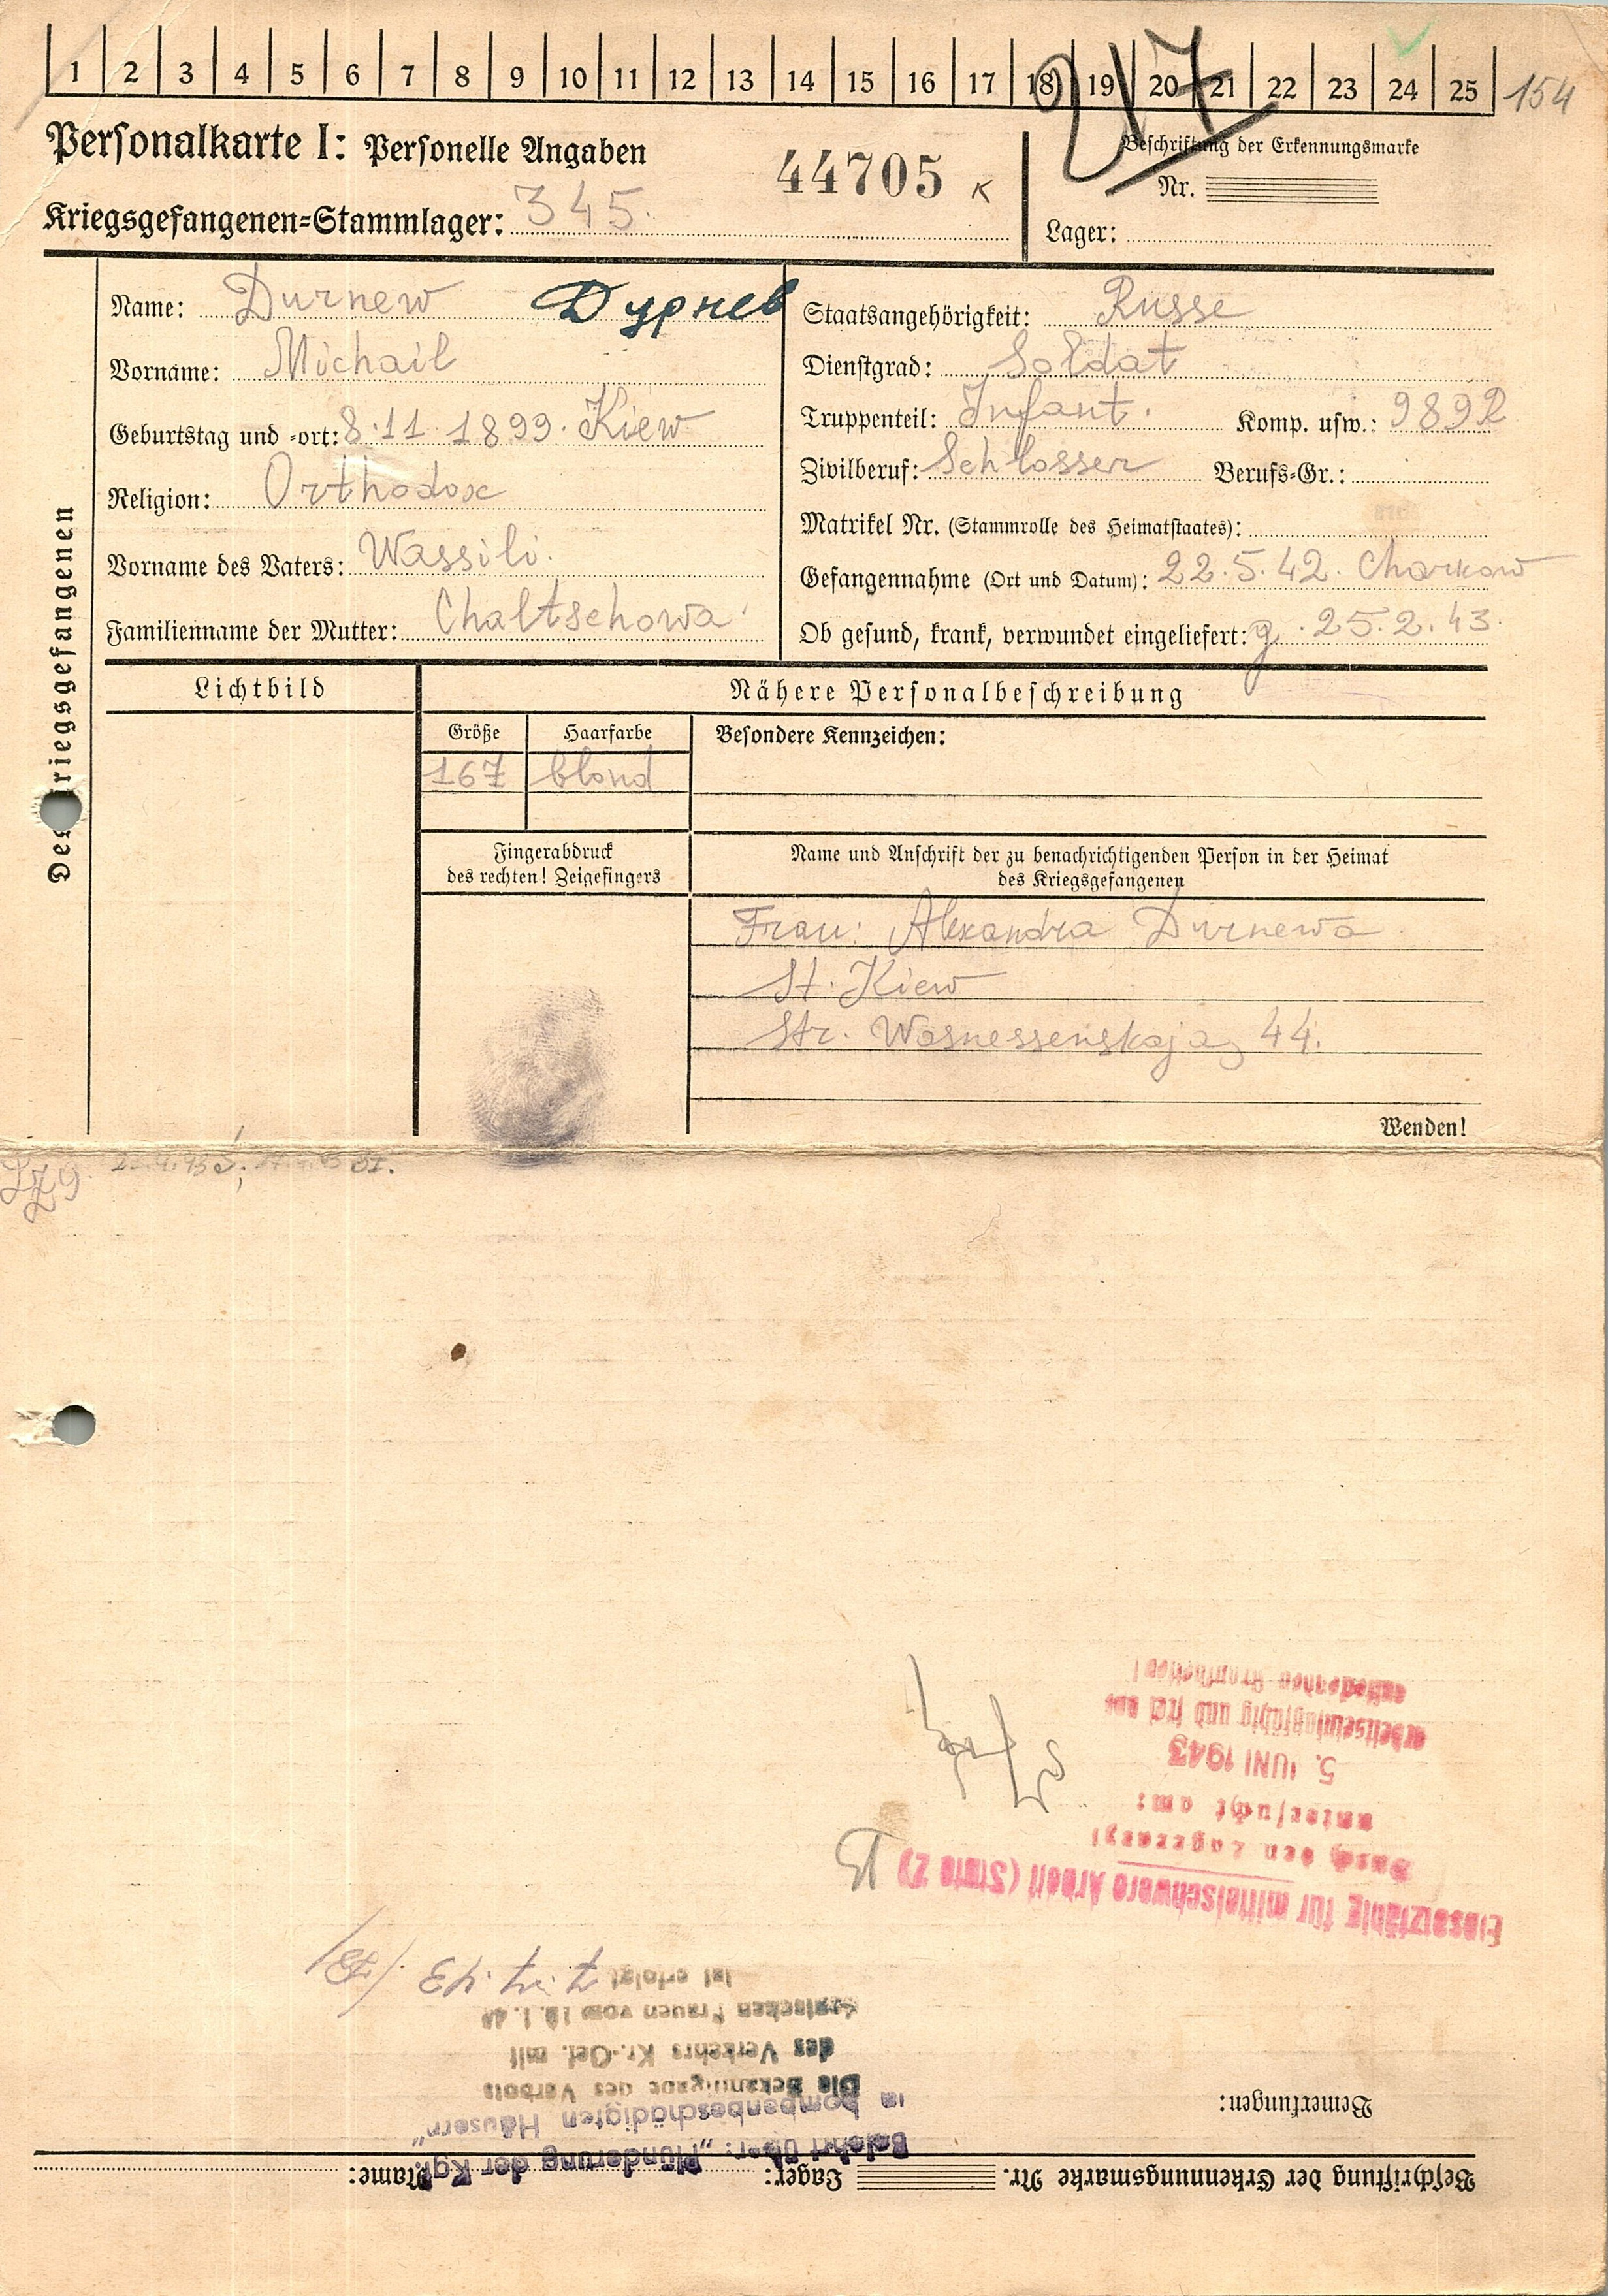 1 2 3 4 5 6 7 8 9 10 11 12 13 14 15 16 17 18 19 20 21 22 23 24 25 154
217
Personalkarte I: Personelle Angaben
44705 K
Beschriftung der Erkennungsmarke
Nr.
Kriegsgefangenen=Stammlager: 345.
Lager:
Des Kriegsgefangenen
Name: Durnew Дурнев
Vorname: Michail
Geburtstag und =ort: 8.11.1899. Kiew
Religion: Orthodox
Vorname des Vaters: Wassili.
Familienname der Mutter: Chaltschowa
Staatsangehörigkeit: Russe
Dienstgrad: Soldat
Truppenteil: Infant. Komp. usw.: 9892
Zivilberuf: Schlosser Berufs=Gr.:
Matrikel Nr. (Stammrolle des Heimatstaates):
Gefangennahme (Ort und Datum): 22.5.42. Charkow
Ob gesund, krank, verwundet eingeliefert: g. 25.2.43.
Lichtbild
Nähere Personalbeschreibung
Größe Haarfarbe Besondere Kennzeichen:
167 blond
Fingerabdruck
des rechten! Zeigefingers
Name und Anschrift der zu benachrichtigenden Person in der Heimat
des Kriegsgefangenen
Frau: Alexandra Durnewa
St. Kiew
Str. Wosnessenskaja 44.
Wenden!
Beschriftung der Erkennungsmarke Nr. Lager: Name:
Bemerkungen:
Belehrt über: „Plünderung der Kgf.
in bombenbeschädigten Häusern"
Die Bekanntgabe des Verbots
des Verkehrs Kr.-Gef. mit
deutschen Frauen vom
ist erfolgt
Einsatzfähig für mittelschwere Arbeit (Stufe 2)
Durch den Lagerarzt
untersucht am:
5. JUNI 1943
arbeitseinsatzfähig und frei von
ansteckenden Krankheiten!